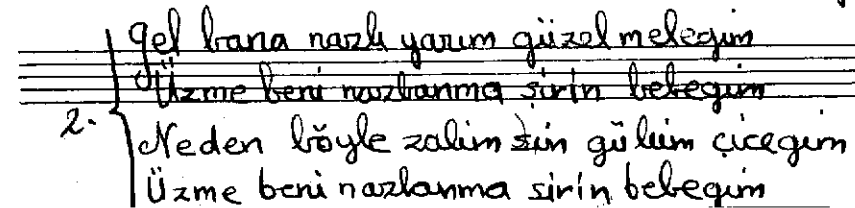 gel bana nazlı yarım güzel meleğim
Üzme beni nazlanma şirin bebeğim
2. Neden böyle zalim sin gülüm çiceğim
Üzme beni nazlanma şirin bebeğim